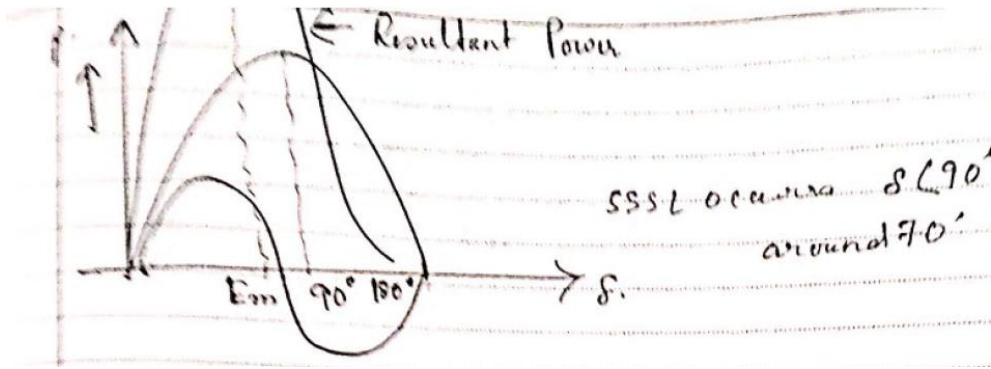 ← Resultant Power
SSSL occurs δ<90°
around 70°
Em 90° 180° δ.